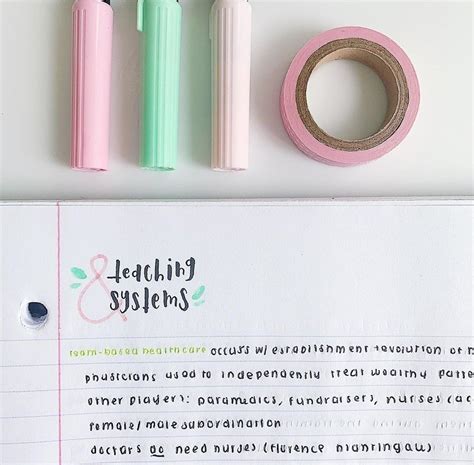 & teaching
systems
team-based healthcare occurs w/ establishment + evolution of
physicians used to independently treat wealthy
other players: paramedics, fundraisers, nurses
female/male subordination
doctors do need nurses (florence nightingale)